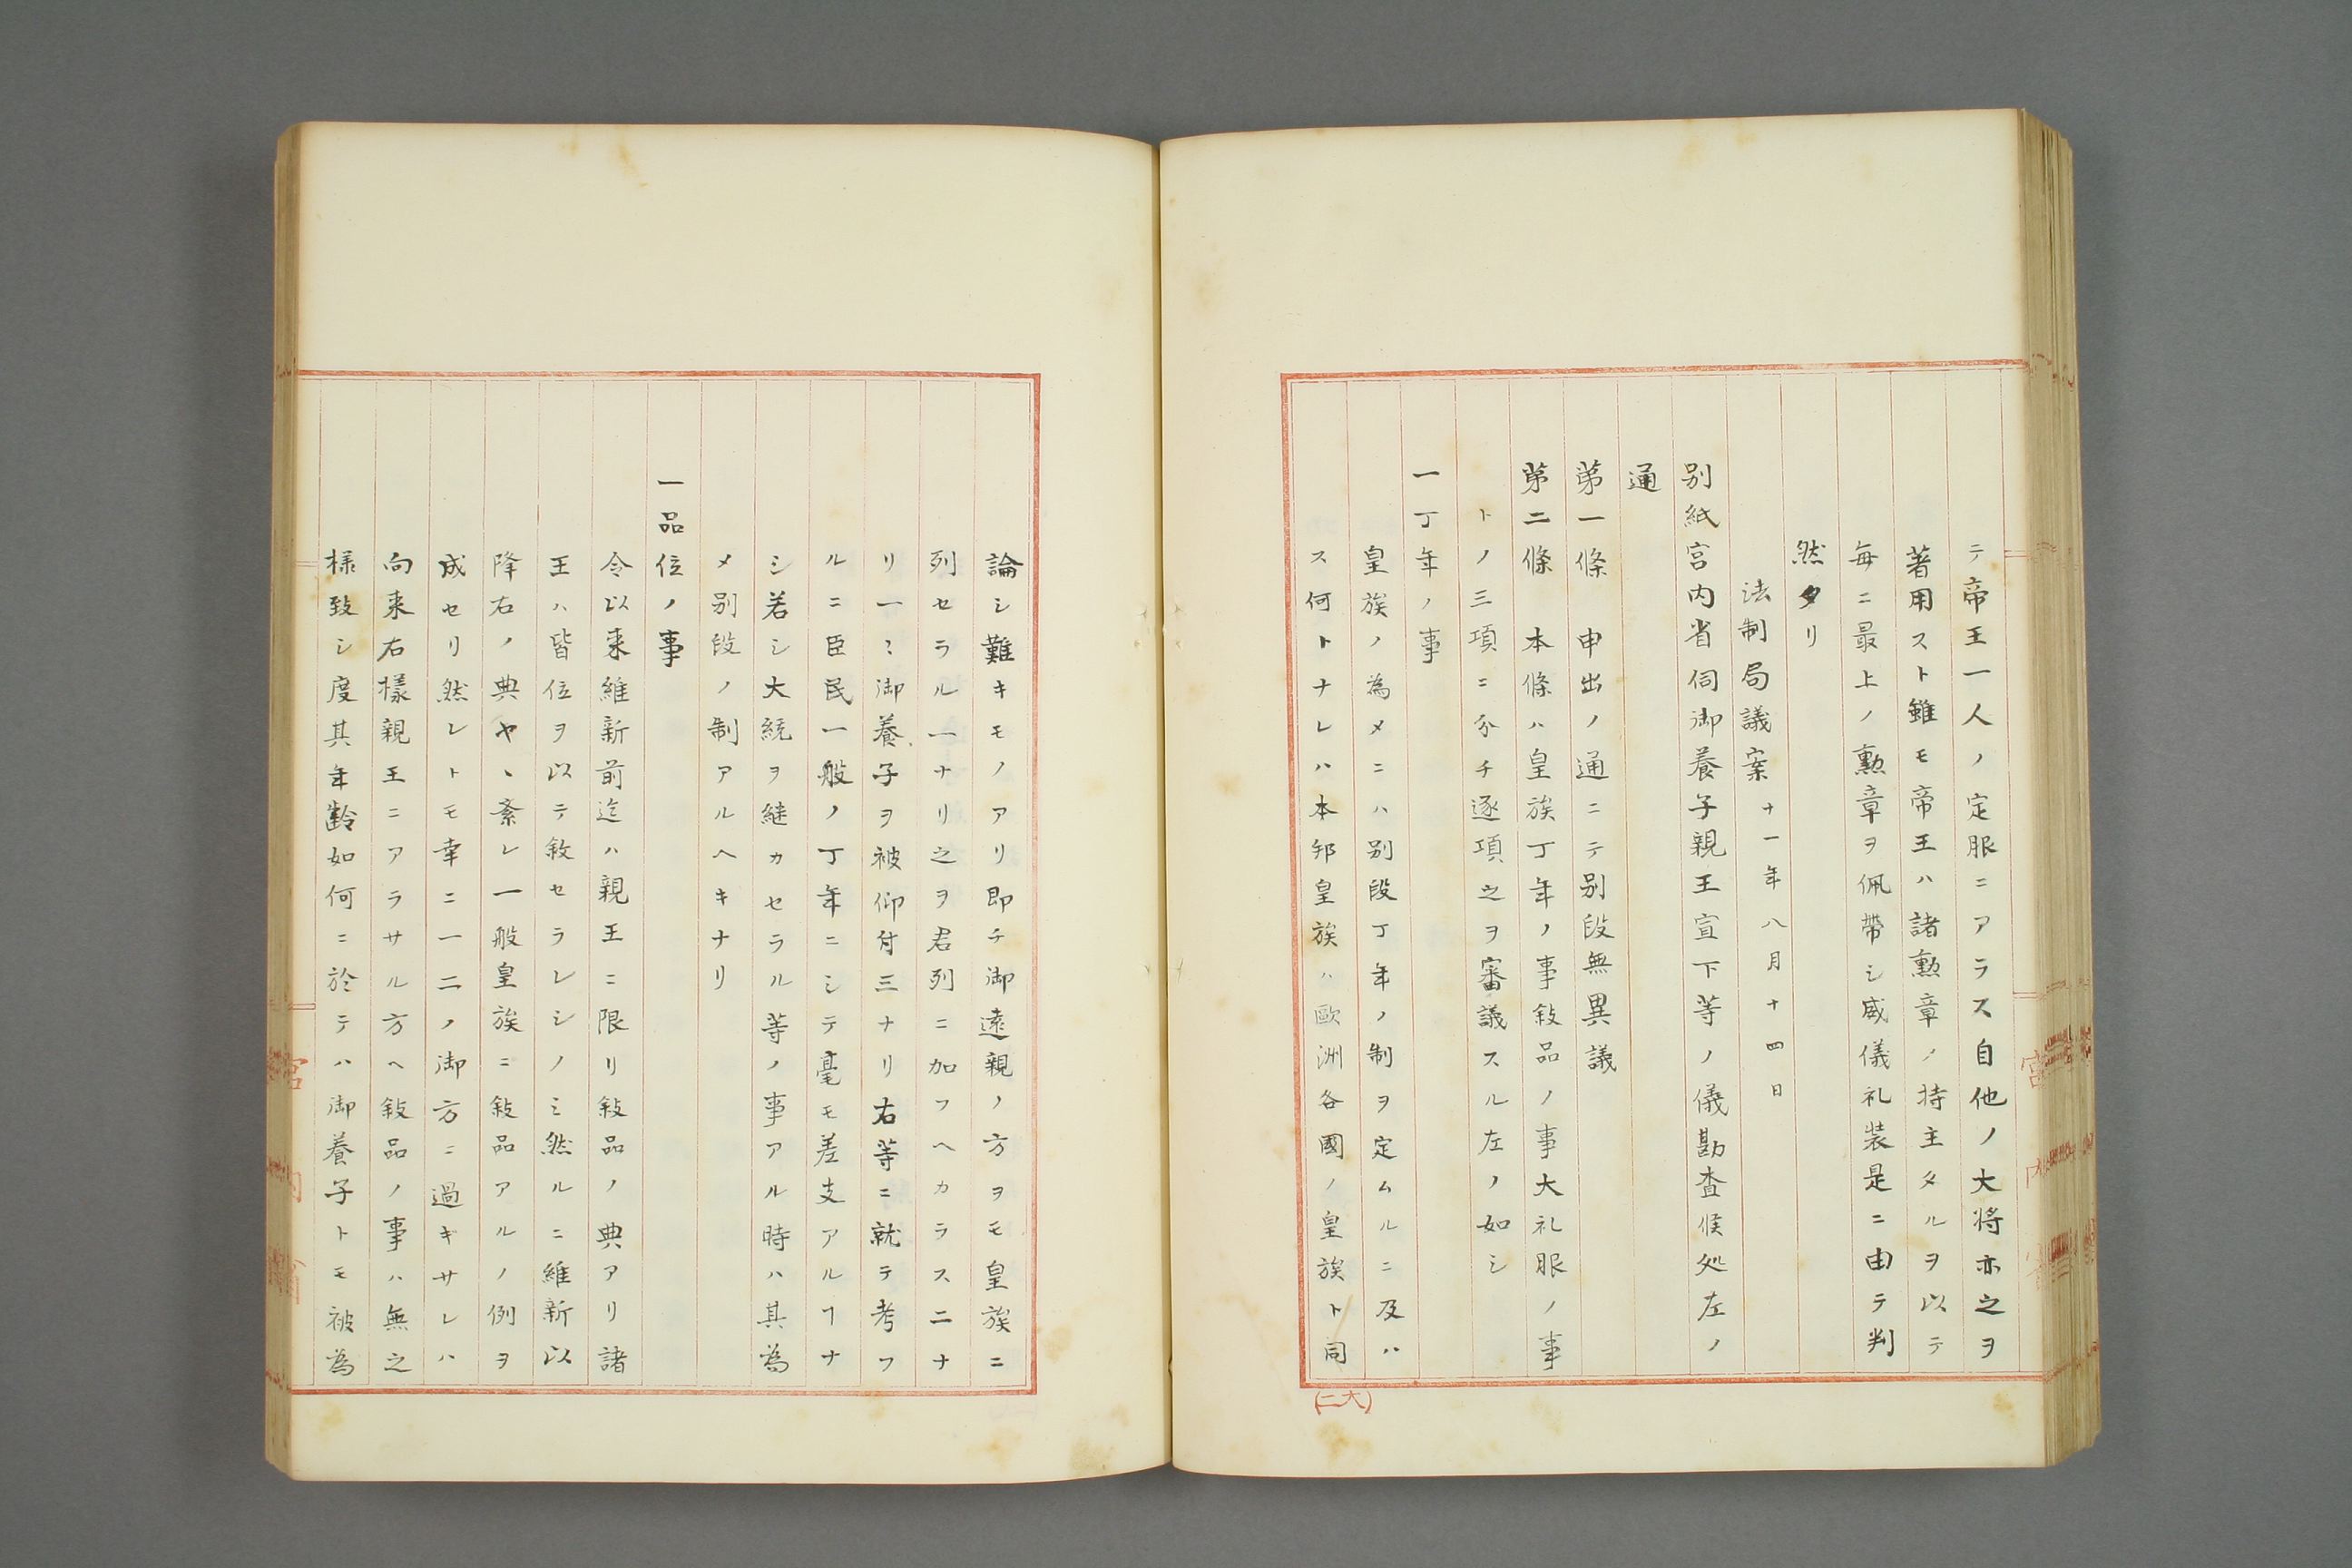 テ帝王一人ノ定服ニアラス自他ノ大将亦之ヲ
著用スト雖モ帝王ハ諸勲章ノ持主タルヲ以テ
毎ニ最上ノ勲章ヲ佩帶シ威儀礼装是ニ由テ判
然タリ
法制局議案 十一年八月十四日
別紙宮内省伺御養子親王宣下等ノ儀勘査候処左ノ
通
第一條 申出ノ通ニテ別段無異議
第二條 本條ハ皇族丁年ノ事敍品ノ事大礼服ノ事
トノ三項ニ分チ逐項之ヲ審議スル左ノ如シ
一丁年ノ事
皇族ノ為メニハ別段丁年ノ制ヲ定ムルニ及ハ
ス何トナレハ本邦皇族ハ歐洲各國ノ皇族ト同
(二大)
論シ難キモノアリ即チ御遠親ノ方ヲモ皇族ニ
列セラル一ナリ之ヲ君列ニ加フヘカラス二ナ
リ一ミ御養子ヲ被仰付三ナリ右等ニ就テ考フ
ルニ臣民一般ノ丁年ニシテ毫モ差支アルヿナ
シ若シ大統ヲ継カセラル等ノ事アル時ハ其為
メ別段ノ制アルヘキナリ
一品位ノ事
令以来維新前迄ハ親王ニ限リ敍品ノ典アリ諸
王ハ皆位ヲ以テ敘セラレシノミ然ルニ維新以
降右ノ典ヤヽ紊レ一般皇族ニ敍品アルノ例ヲ
成セリ然レトモ幸ニ一二ノ御方ニ過キサレハ
向来右様親王ニアラサル方ヘ敍品ノ事ハ無之
様致シ度其年齢如何ニ於テハ御養子トモ被為
宮内省
宮内省